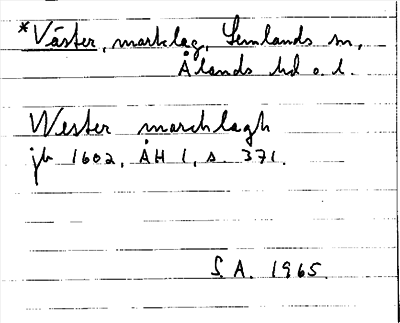 *Väster, marklag, Lemlands sn,
Ålands hd o. l.
Wester marchlagh
jb 1602, ÅH 1, s. 371.
S.A. 1965.